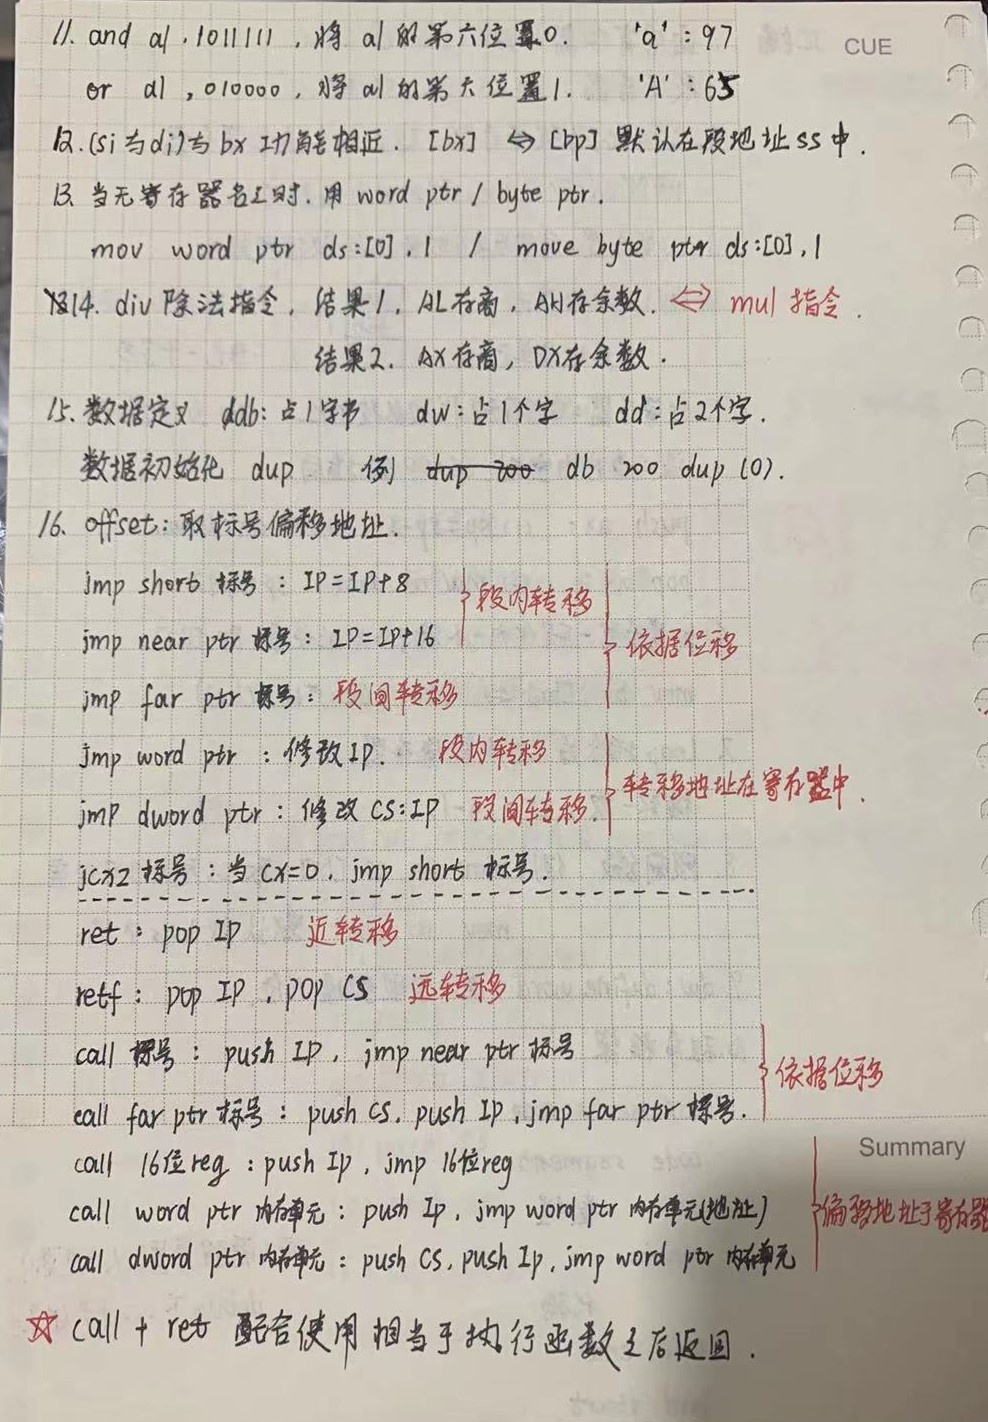 11. and al , 1011111 , 将 al 的第六位置0. 'a' : 97
CUE
or al , 010000 , 将 al 的第六位置1. 'A' : 65
12. (si与di)与 bx 功能相近. [bx] ⇔ [bp] 默认在段地址 ss 中.
13. 当无寄存器名工时. 用 word ptr / byte ptr.
mov word ptr ds:[0] , 1 / move byte ptr ds:[0] , 1
14. div 除法指令, 结果1, AL存商, AH存余数. ⇔ mul 指令.
结果2. AX存商, DX存余数.
15. 数据定义 db: 占1字节 dw: 占1个字 dd: 占2个字.
数据初始化 dup 例 dup 200 db 200 dup (0).
16. offset: 取标号偏移地址.
jmp short 标号 : IP=IP+8
段内转移
jmp near ptr 标号 : IP=IP+16
依据位移
jmp far ptr 标号 : 段间转移
jmp word ptr : 修改IP. 段内转移
转移地址在寄存器中.
jmp dword ptr : 修改 CS:IP 段间转移.
jcxz 标号 : 当 cx=0 , jmp short 标号.
ret : pop IP 近转移
retf : pop IP , pop CS 远转移
call 标号 : push IP , jmp near ptr 标号
依据位移
call far ptr 标号 : push CS, push IP , jmp far ptr 标号.
Summary
call 16位reg : push Ip , jmp 16位reg
call word ptr 内存单元 : push Ip , jmp word ptr 内存单元(地址)
偏移地址于寄存器
call dword ptr 内存单元 : push CS, push Ip , jmp word ptr 内存单元
☆ call + ret 配合使用相当于执行函数之后返回.